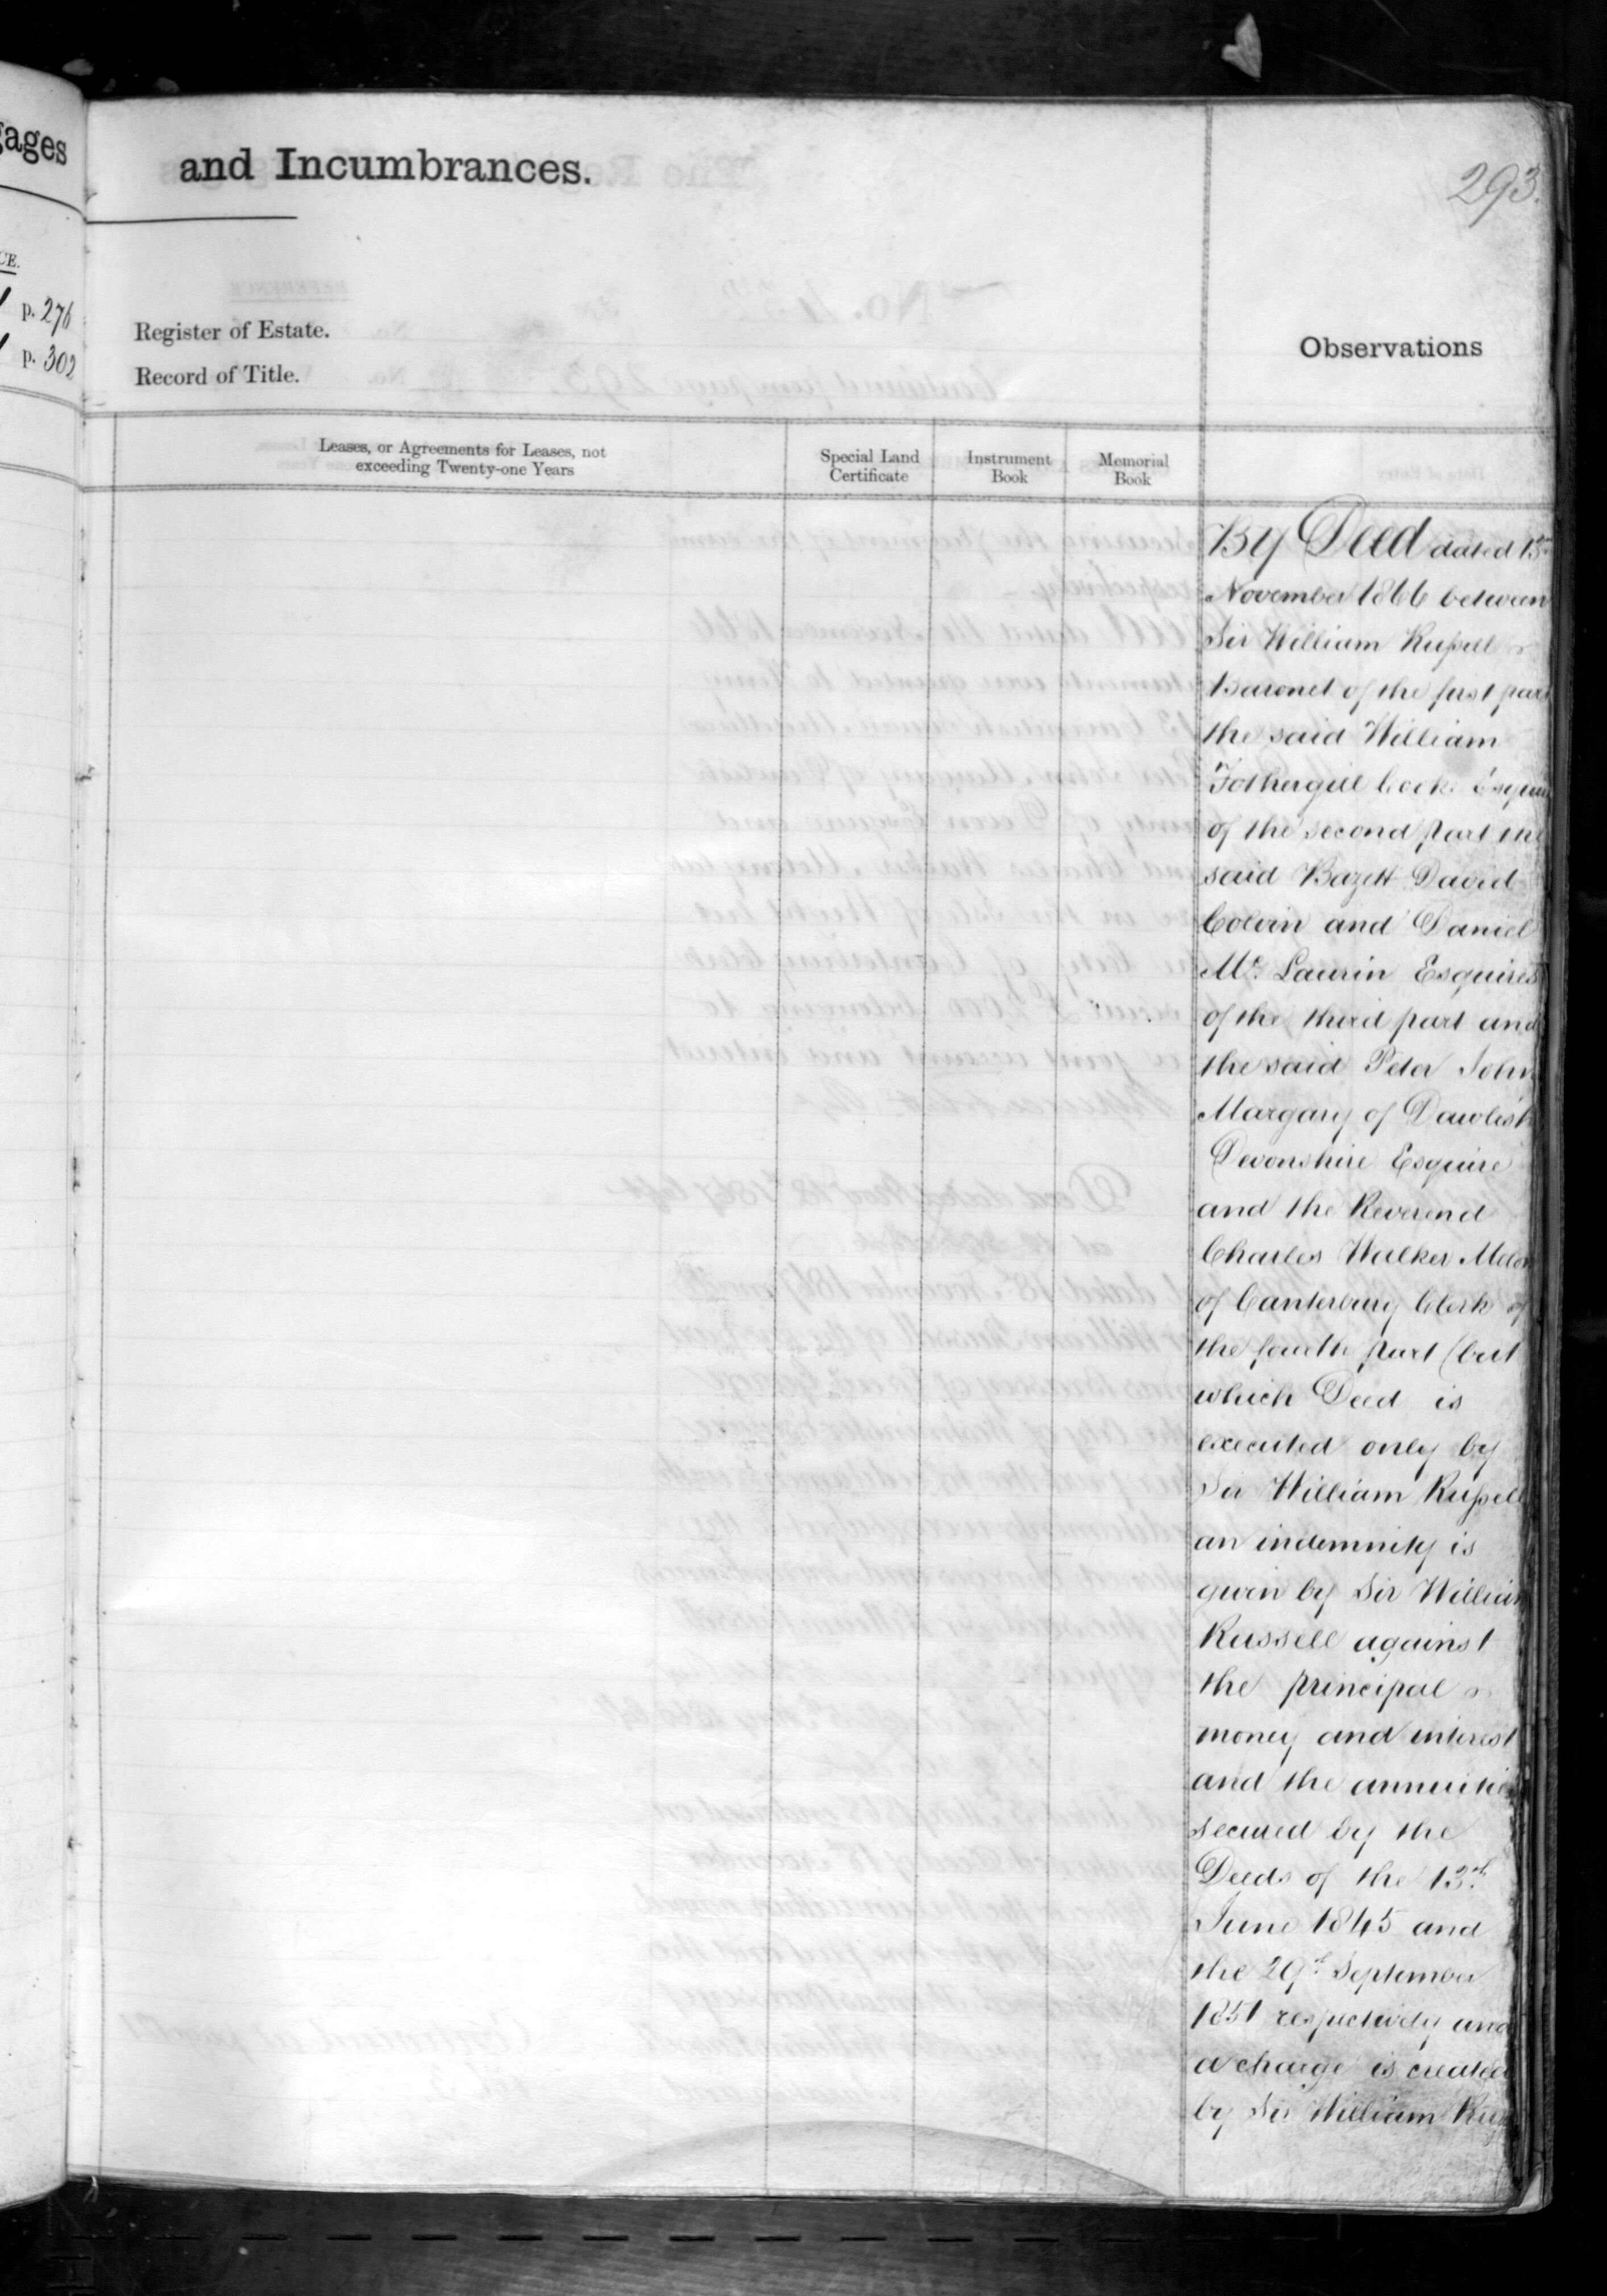 gages
and Incumbrances.
293.
CE.
p. 276
p. 302
Register of Estate.
Record of Title.
Observations
Leases, or Agreements for Leases, not
exceeding Twenty-one Years
Special Land
Certificate
Instrument
Book
Memorial
Book
By Deed dated 13th
November 1866 between
Sir William Russell
Baronet of the first part
the said William
Fothergill Cook Esquire
of the second part the
said Bazett David
Colvin and Daniel
Mc. Laurin Esquires
of the third part and
the said Peter John
Margary of Dawlish
Devonshire Esquire
and the Reverend
Charles Walker
of Canterbury Clerk of
the fourth part (but
which Deed is
executed only by
Sir William Russell
an indemnity is
given by Sir William
Russell against
the principal
money and interest
and the annuities
secured by the
Deeds of the 13th
June 1845 and
the 29th September
1851 respectively and
a charge is created
by Sir William